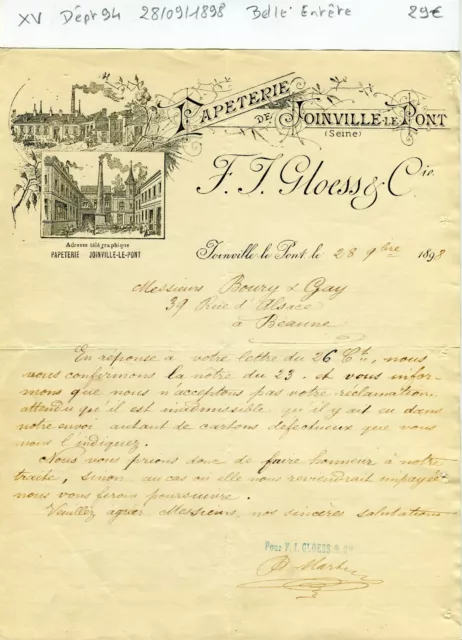 XV Dépt 94 28/09/1898 Belle Entête 29€
PAPETERIE
DE JOINVILLE-LE-PONT
(Seine)
F. J. Gloess & Cie.
Adresse télégraphique
PAPETERIE JOINVILLE-LE-PONT
Joinville-le-Pont, le 28 9bre 1898
Messieurs Boury & Gay
39 Rue d'Alsace
à Beaune
En réponse à votre lettre du 26 Ct, nous
vous confirmons la nôtre du 23. et vous infor-
mons que nous n'acceptons pas votre réclamation,
attendu qu'il est inadmissible qu'il y ait eu dans
notre envoi autant de cartons défectueux que vous
nous l'indiquez.
Nous vous prions donc de faire honneur à notre
traite, sinon au cas où elle nous reviendrait impayée
nous vous ferons poursuivre.
Veuillez agréer Messieurs, nos sincères salutations
Pour F. J. GLOESS & Cie
Martin